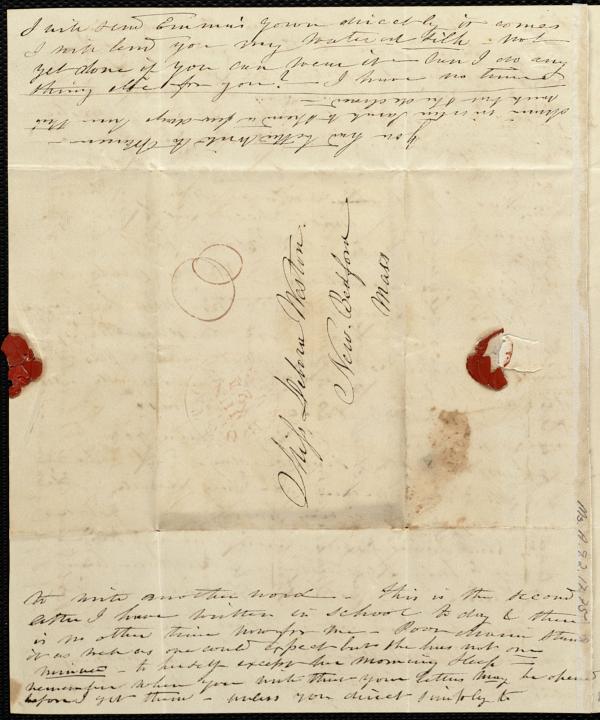 I will send Emma's gown directly it comes
I will lend you my watered silk - not
yet done if you can wear it - Can I do any
thing else for you? - I have no time
You had better write to
Miss Debora Weston.
New. Bedford
Mass
to write another word - This is the second
letter I have written in school to day & there
is no other time now for me - Poor Annie stands
it as well as one could expect but she has not one
minute - to herself except her morning sleep -
remember when you write that your letters may be opened
before I get them - unless you direct simply to
Ms. A. 9. 2.